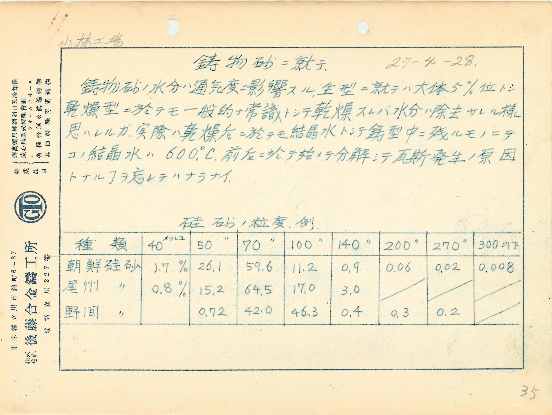 小林工場
鋳物砂ニ就テ 27-4-28.
鋳物砂ノ水分ハ通気度ニ影響スル、生型ニ就テハ大体5%位トシ
乾燥型ニ於テモ一般的ナ常識トシテ乾燥スレバ水分ハ除去サレル様ニ
思ハレルガ、実際ハ乾燥后ニ於テモ結晶水トシテ鋳型中ニ残ルモノニテ
コノ結晶水ハ 600°C 前后ニ於テ始メテ分解シテ瓦斯発生ノ原因
トナル事ヲ忘レテハナラナイ.
硅砂ノ粒度例
種類 40メッシュ 50〃 70〃 100〃 140〃 200〃 270〃 300以下
朝鮮硅砂 1.7% 26.1 59.6 11.2 0.9 0.06 0.02 0.008
尾州〃 0.8% 15.2 64.5 17.0 3.0
野間〃 0.72 42.0 46.3 0.4 0.3 0.2
後藤合金鑄工所
35